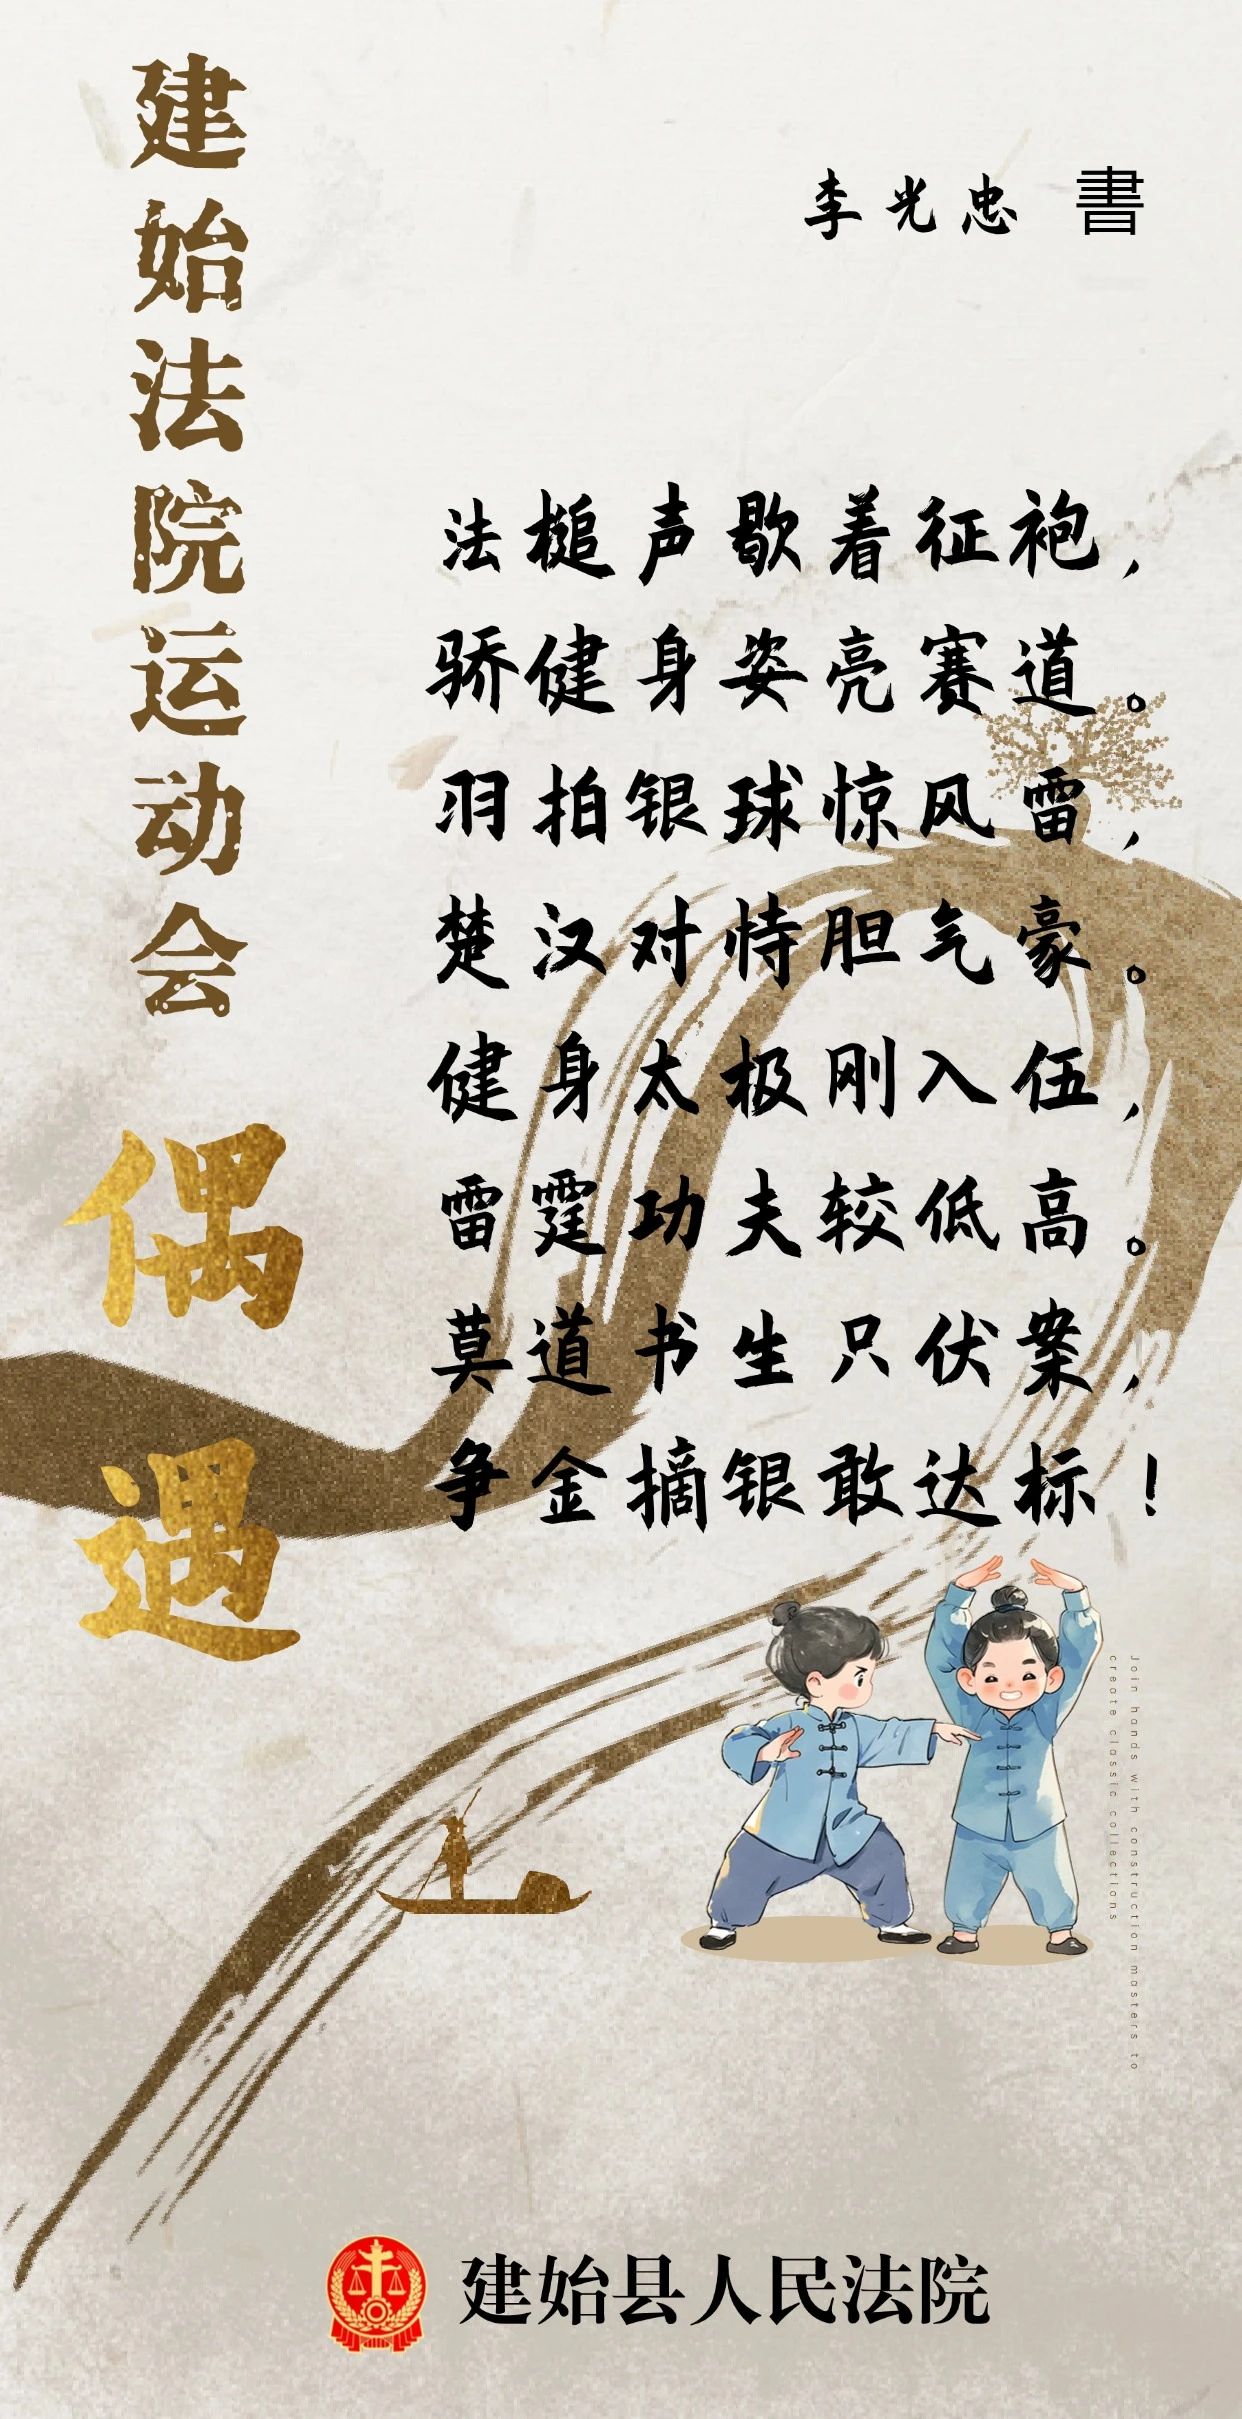 建始法院运动会
偶遇
李光忠 書
法槌声歇着征袍，
骄健身姿亮赛道。
羽拍银球惊风雷，
楚汉对恃胆气豪。
健身太极刚入伍，
雷霆功夫较低高。
莫道书生只伏案，
争金摘银敢达标！
Join hands with construction masters to
create classic collections
建始县人民法院